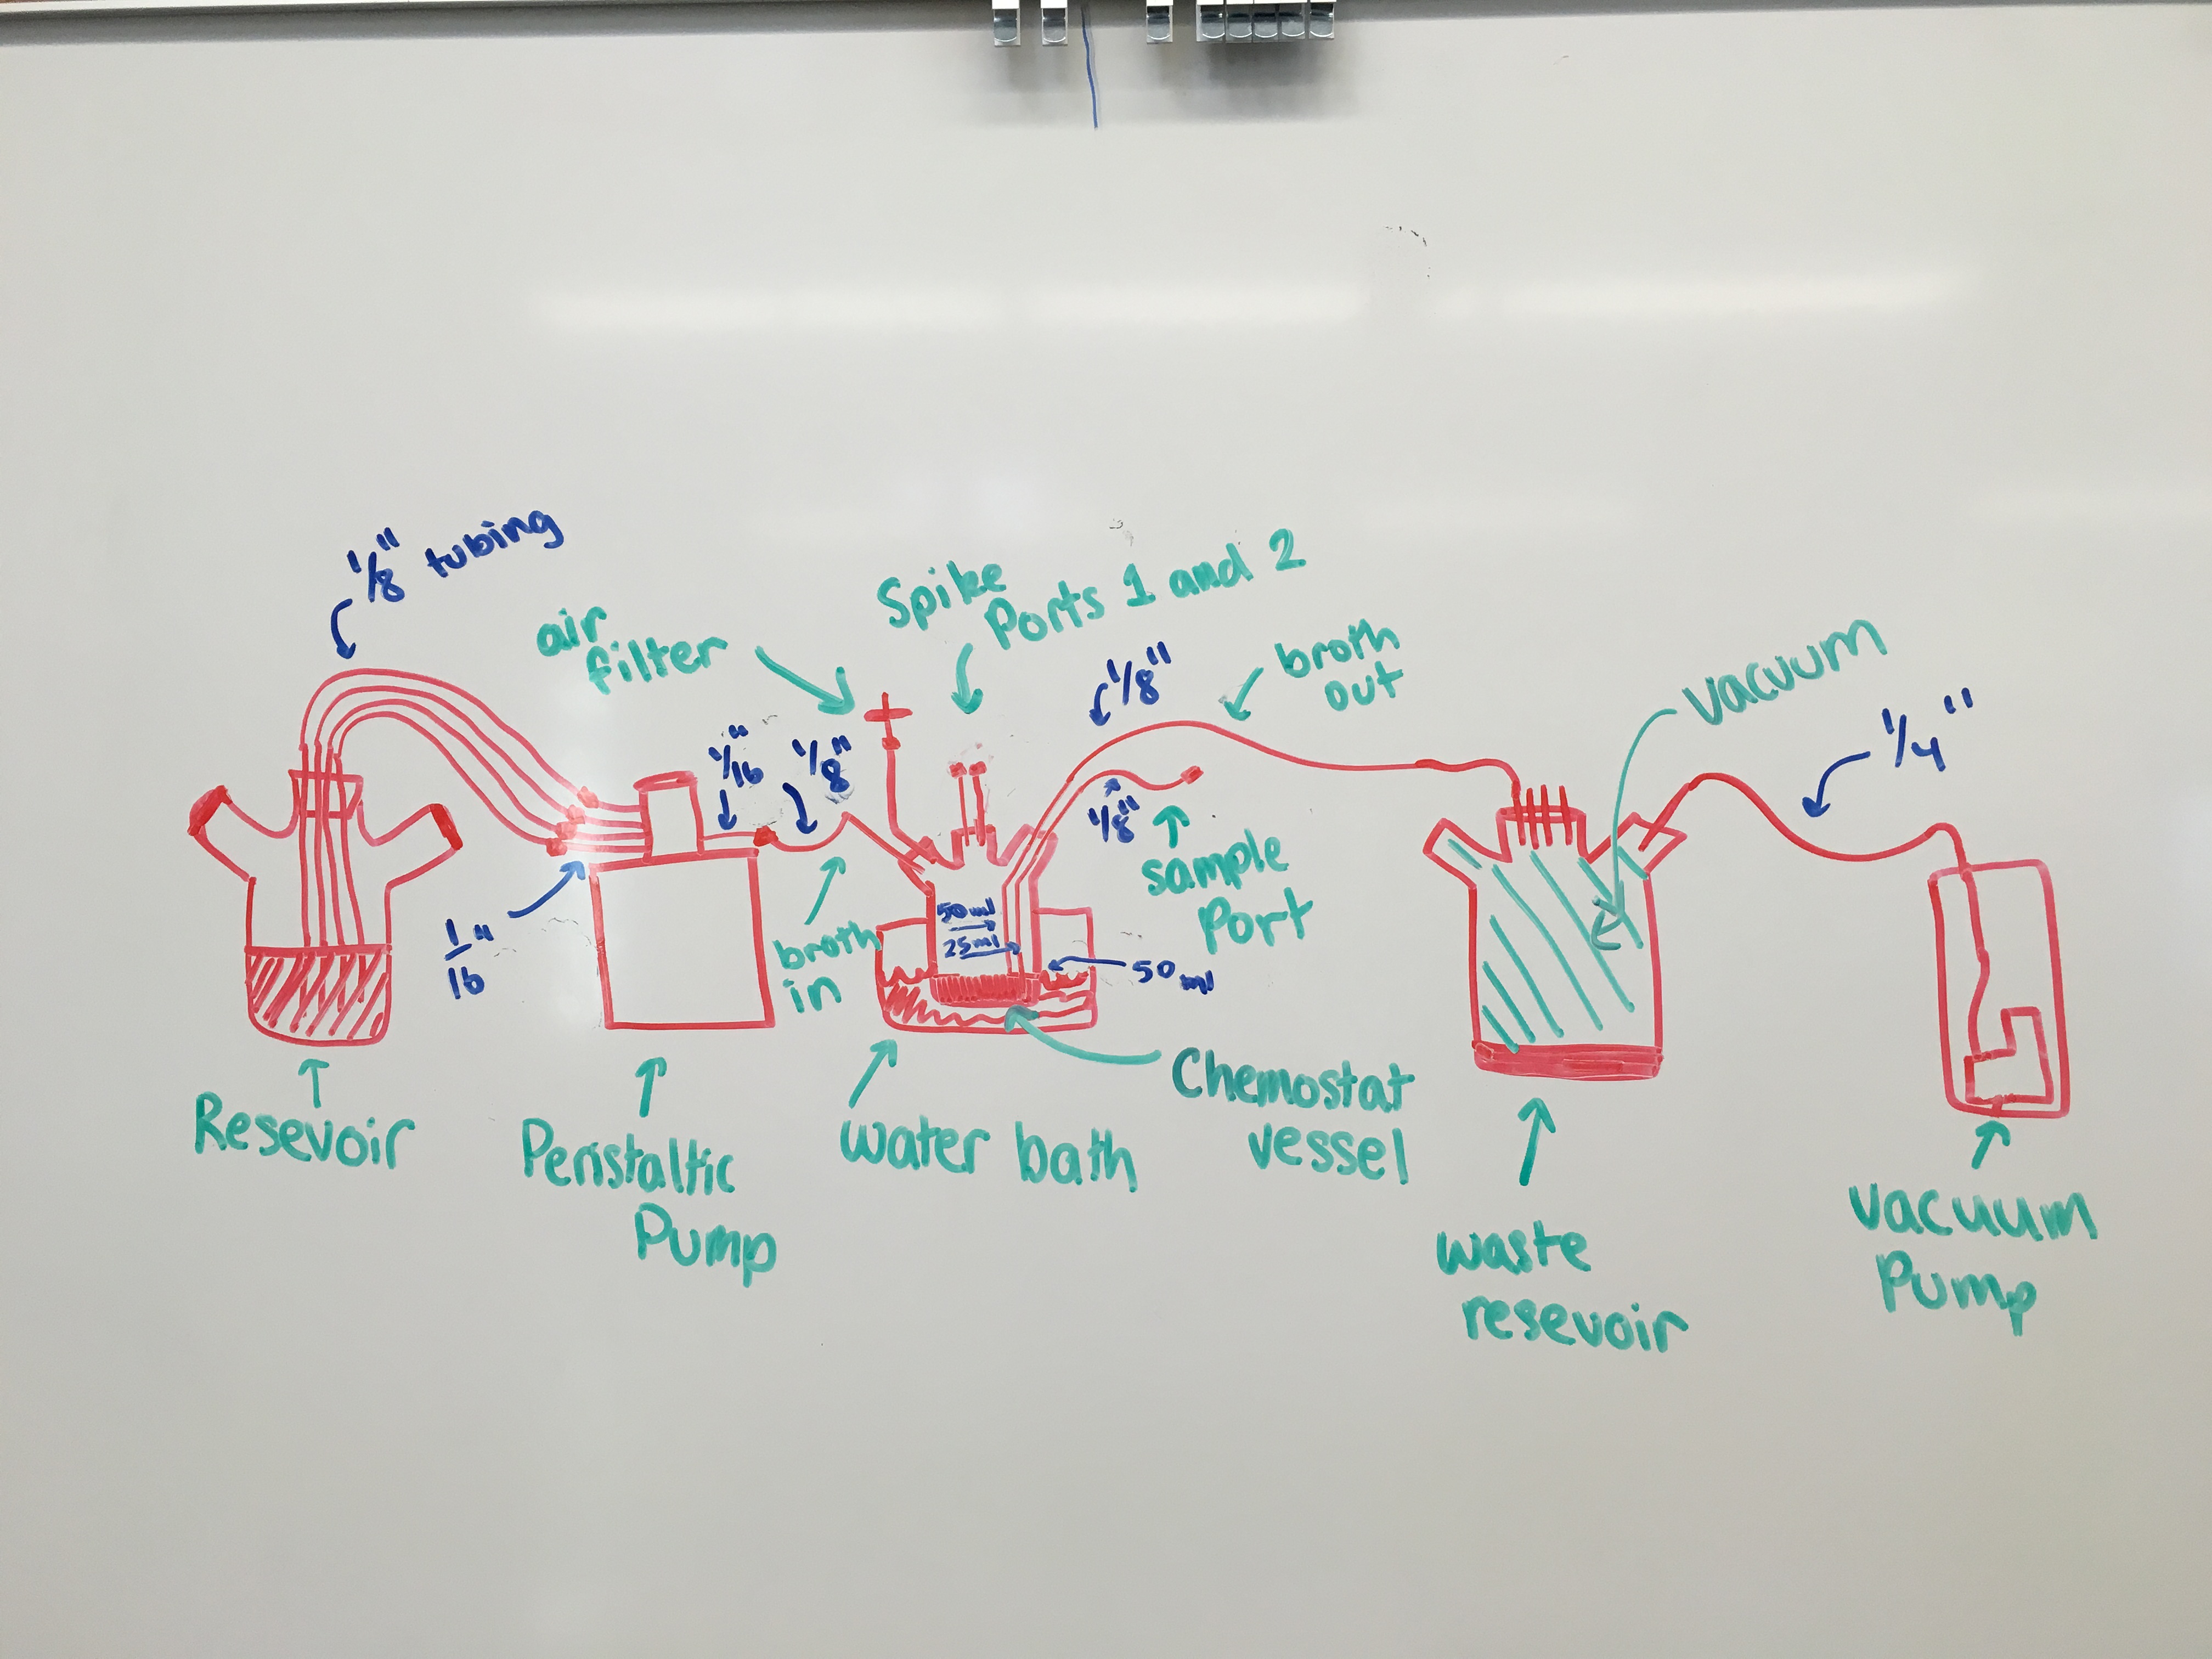 1/8" tubing
air
filter
Spike
Ports 1 and 2
1/8"
broth
out
vacuum
1/4"
1/16"
1/8"
1/8"
sample
Port
1/16"
broth
in
50 ml
25 ml
50 ml
Resevoir
Peristaltic
Pump
water bath
Chemostat
vessel
waste
resevoir
vacuum
Pump